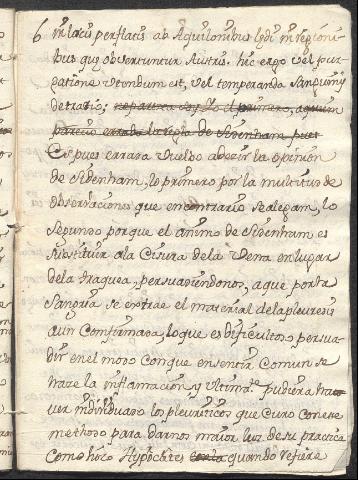 6 in lacus perflatus ab Aquilonibus lędi in regioni-
bus quę obvertuntur Austris. hic ergo vel pur-
gatione utendum est, vel temperanda Sanguinis
detratio; no parezca soy Yo el primero, a quien
parecio errada la regla de Sidenham pues
Es pues errara vuelbo a decir la opinion
de Sidenham, lo primero por la multitud de
observaciones que en contrario se alegan, lo
segundo porque el animo de Sidenham es
substituir a la Cisura de la Vena en lugar
de la traquea, persuadiendonos, a que por la
Sangria se extrae el material de la pleuresis
aun Confirmada, lo que es dificultoso persua-
dir en el modo con que en sentir Comun se
haze la inflamacion, y Ultimte pudiera ha-
ver individuado los pleuriticos que Curó con ese
methodo para darnos maior luz de su practica
Como hizo Hypochtes quando refiere